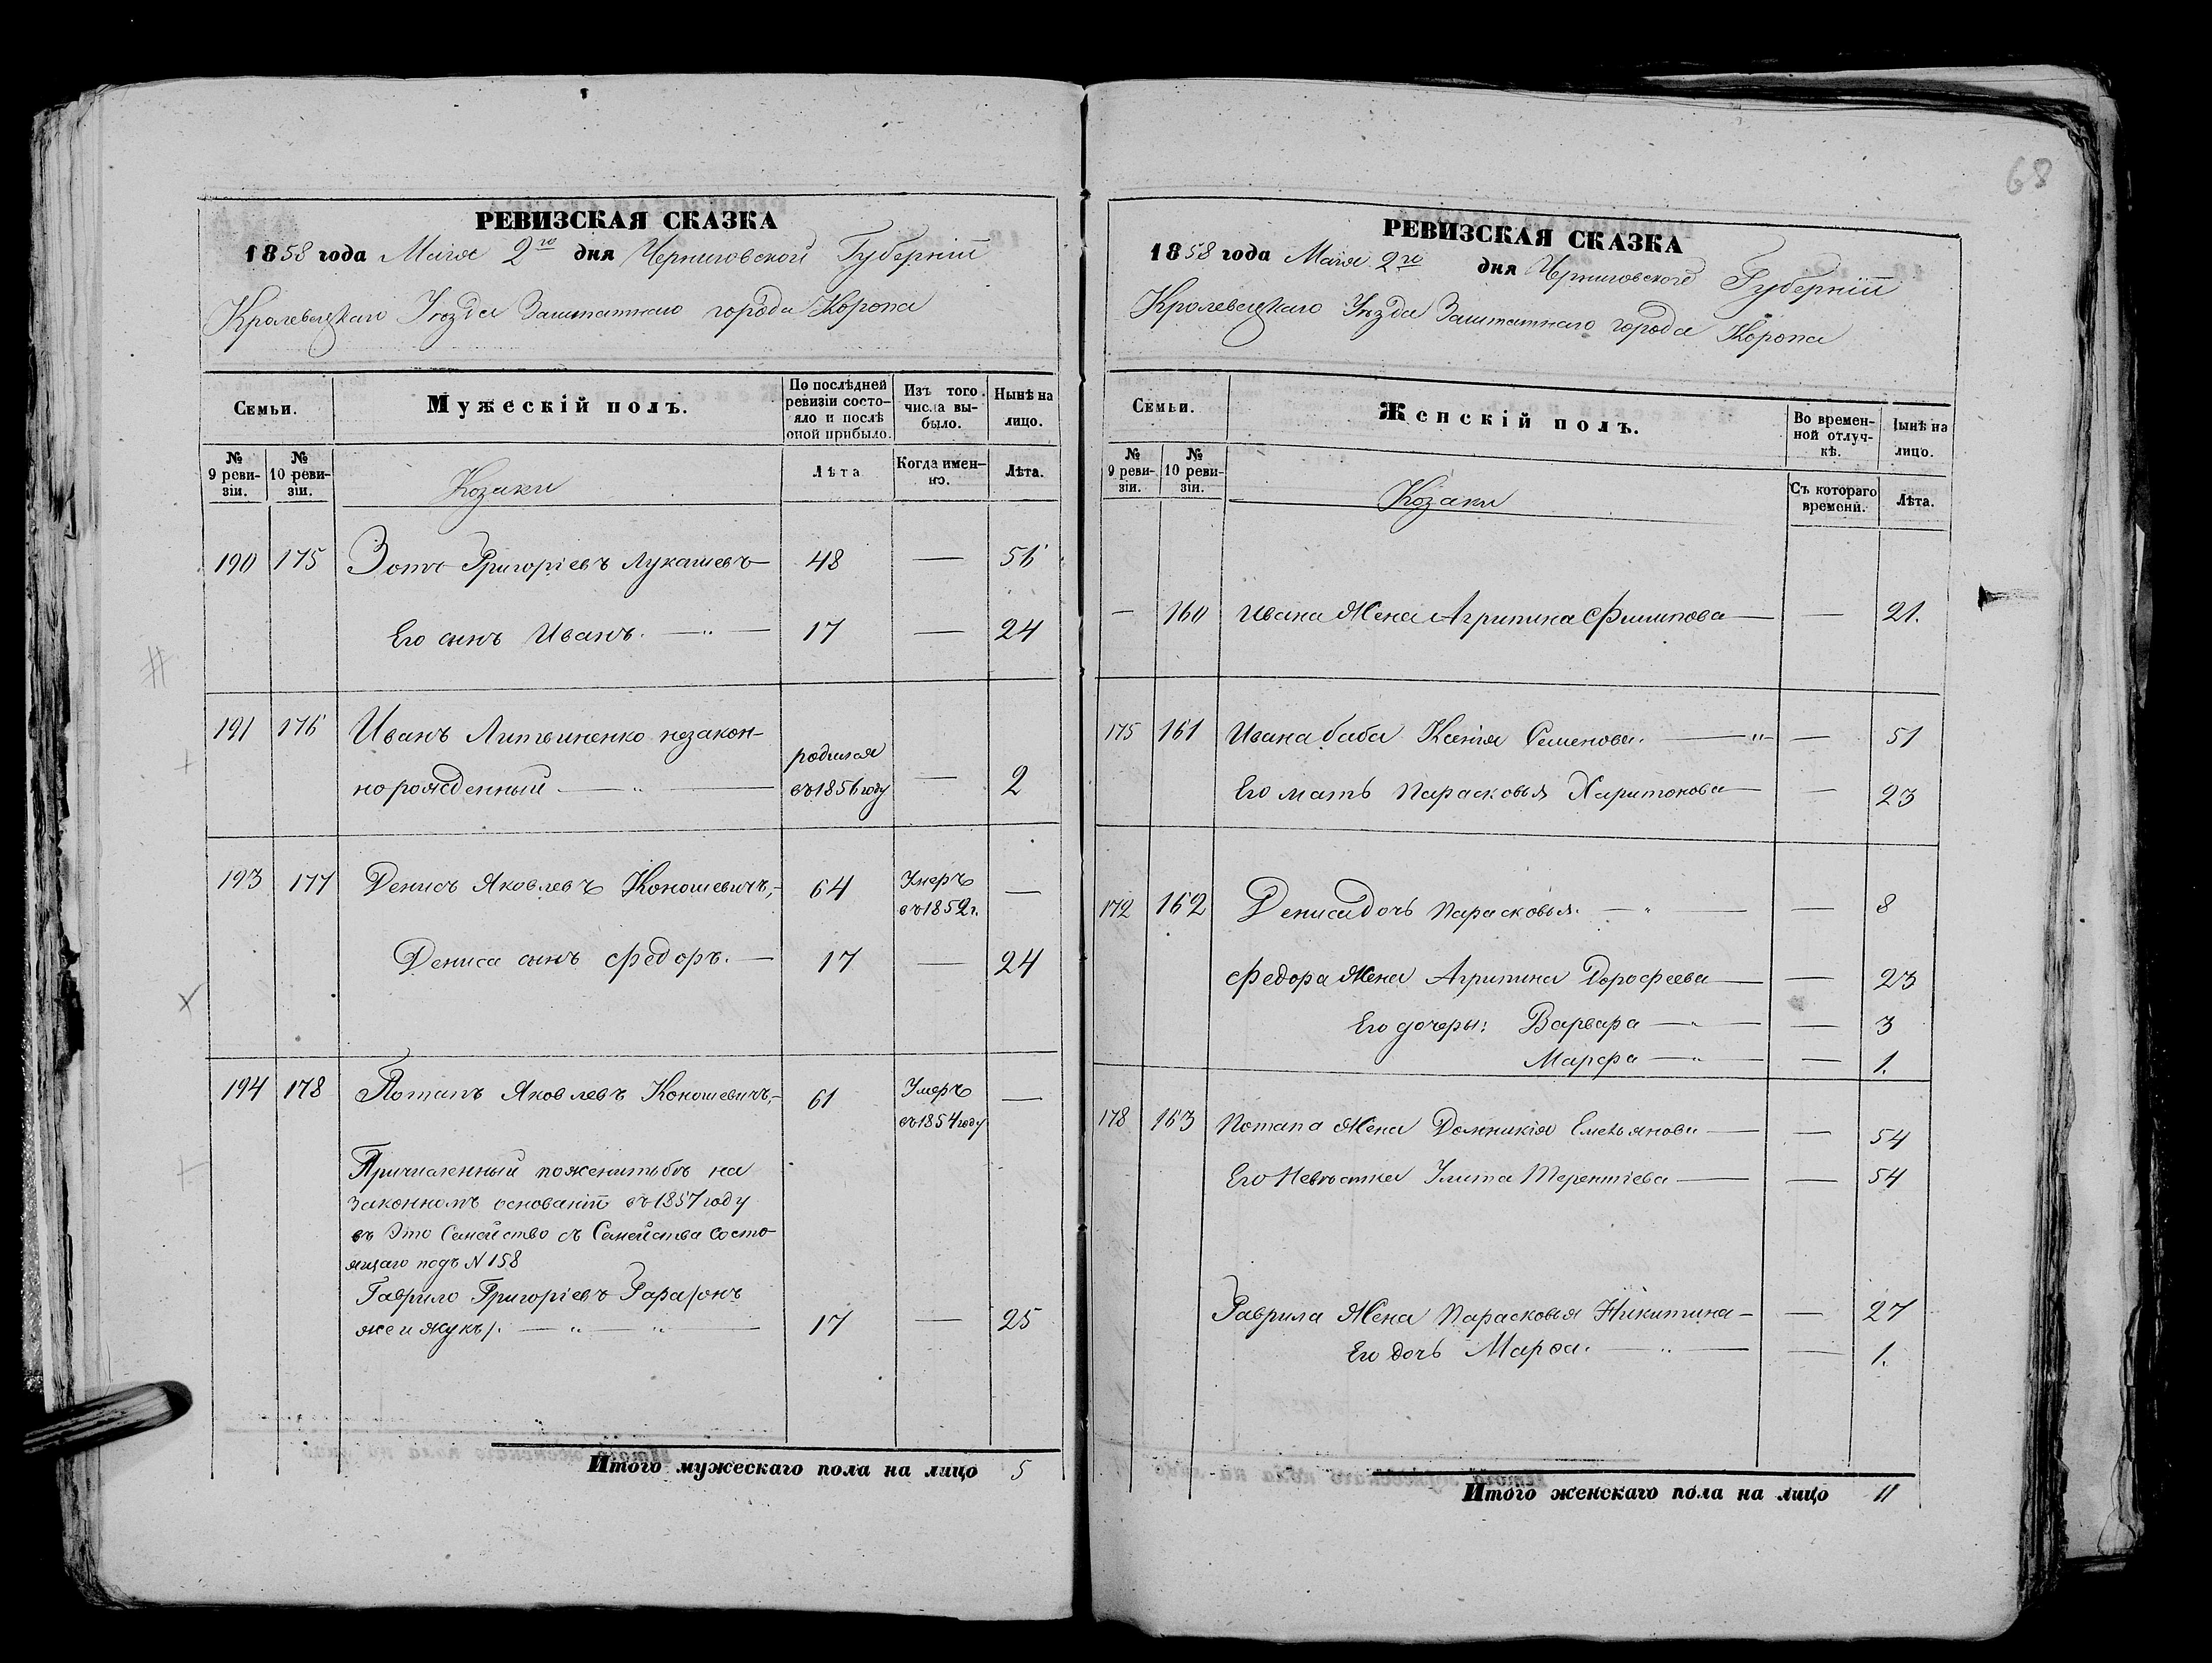 68
РЕВИЗСКАЯ СКАЗКА
1858 года Маія 2го дня Черниговской Губерніи
Кролевецкаго Уѣзда Заштатнаго города Коропа
Семьи.
Мужескій полъ.
По послѣдней ревизіи состояло и послѣ оной прибыло.
Изъ того числа выбыло.
Нынѣ на лицо.
№ 9 ревизіи.
№ 10 ревизіи.
Козаки
Лѣта
Когда именно.
Лѣта.
190 175 Зотъ Григоріевъ Лукашевъ — 48 — 56
Его сынъ Иванъ. — „ — 17 — 24
191 176 Иванъ Литвиненко незакон-
норожденный — „ — родился въ 1856 году — 2
193 177 Денисъ Яковлевъ Кокошевичъ,- 64 Умеръ въ 1852 г. —
Дениса сынъ Федоръ. — 17 — 24
194 178 Потапъ Яковлевъ Кокошевичъ,- 61 Умеръ въ 1854 году —
Причисленный поженитьбѣ на
законномъ основаніи въ 1857 году
въ Это Семейство съ Семейства состо-
ящаго подъ № 158
Гаврило Григоріевъ
же и Жукъ/. — „ — „ — 17 — 25
Итого мужескаго пола на лицо 5
РЕВИЗСКАЯ СКАЗКА
1858 года Маія 2го дня Черниговской Губерніи
Кролевецкаго Уѣзда Заштатнаго города Коропа
Семьи.
Женскій полъ.
Во временной отлучкѣ.
Нынѣ на лицо.
№ 9 ревизіи.
№ 10 ревизіи.
Козаки
Съ котораго времени.
Лѣта.
— 160 Ивана Жена Агрипина Филипова — — 21.
175 161 Ивана баба Ксенія Семенова. — „ — 51
Его мать Парасковья Харитонова — — 23
172 162 Дениса дочь Парасковья. — „ — — 8
Федора Жена Агрипина Дорофеева — — 23
Его дочеры: Варвара — „ — — 3
Марфа — „ — — 1.
178 163 Потапа Жена Домникія Емельянова — — 54
Его Невѣстка Улита Терентіева — — 54
Гаврила Жена Парасковья Никитина — — 27
Его дочь Марѳа. — „ — — 1.
Итого женскаго пола на лицо 11